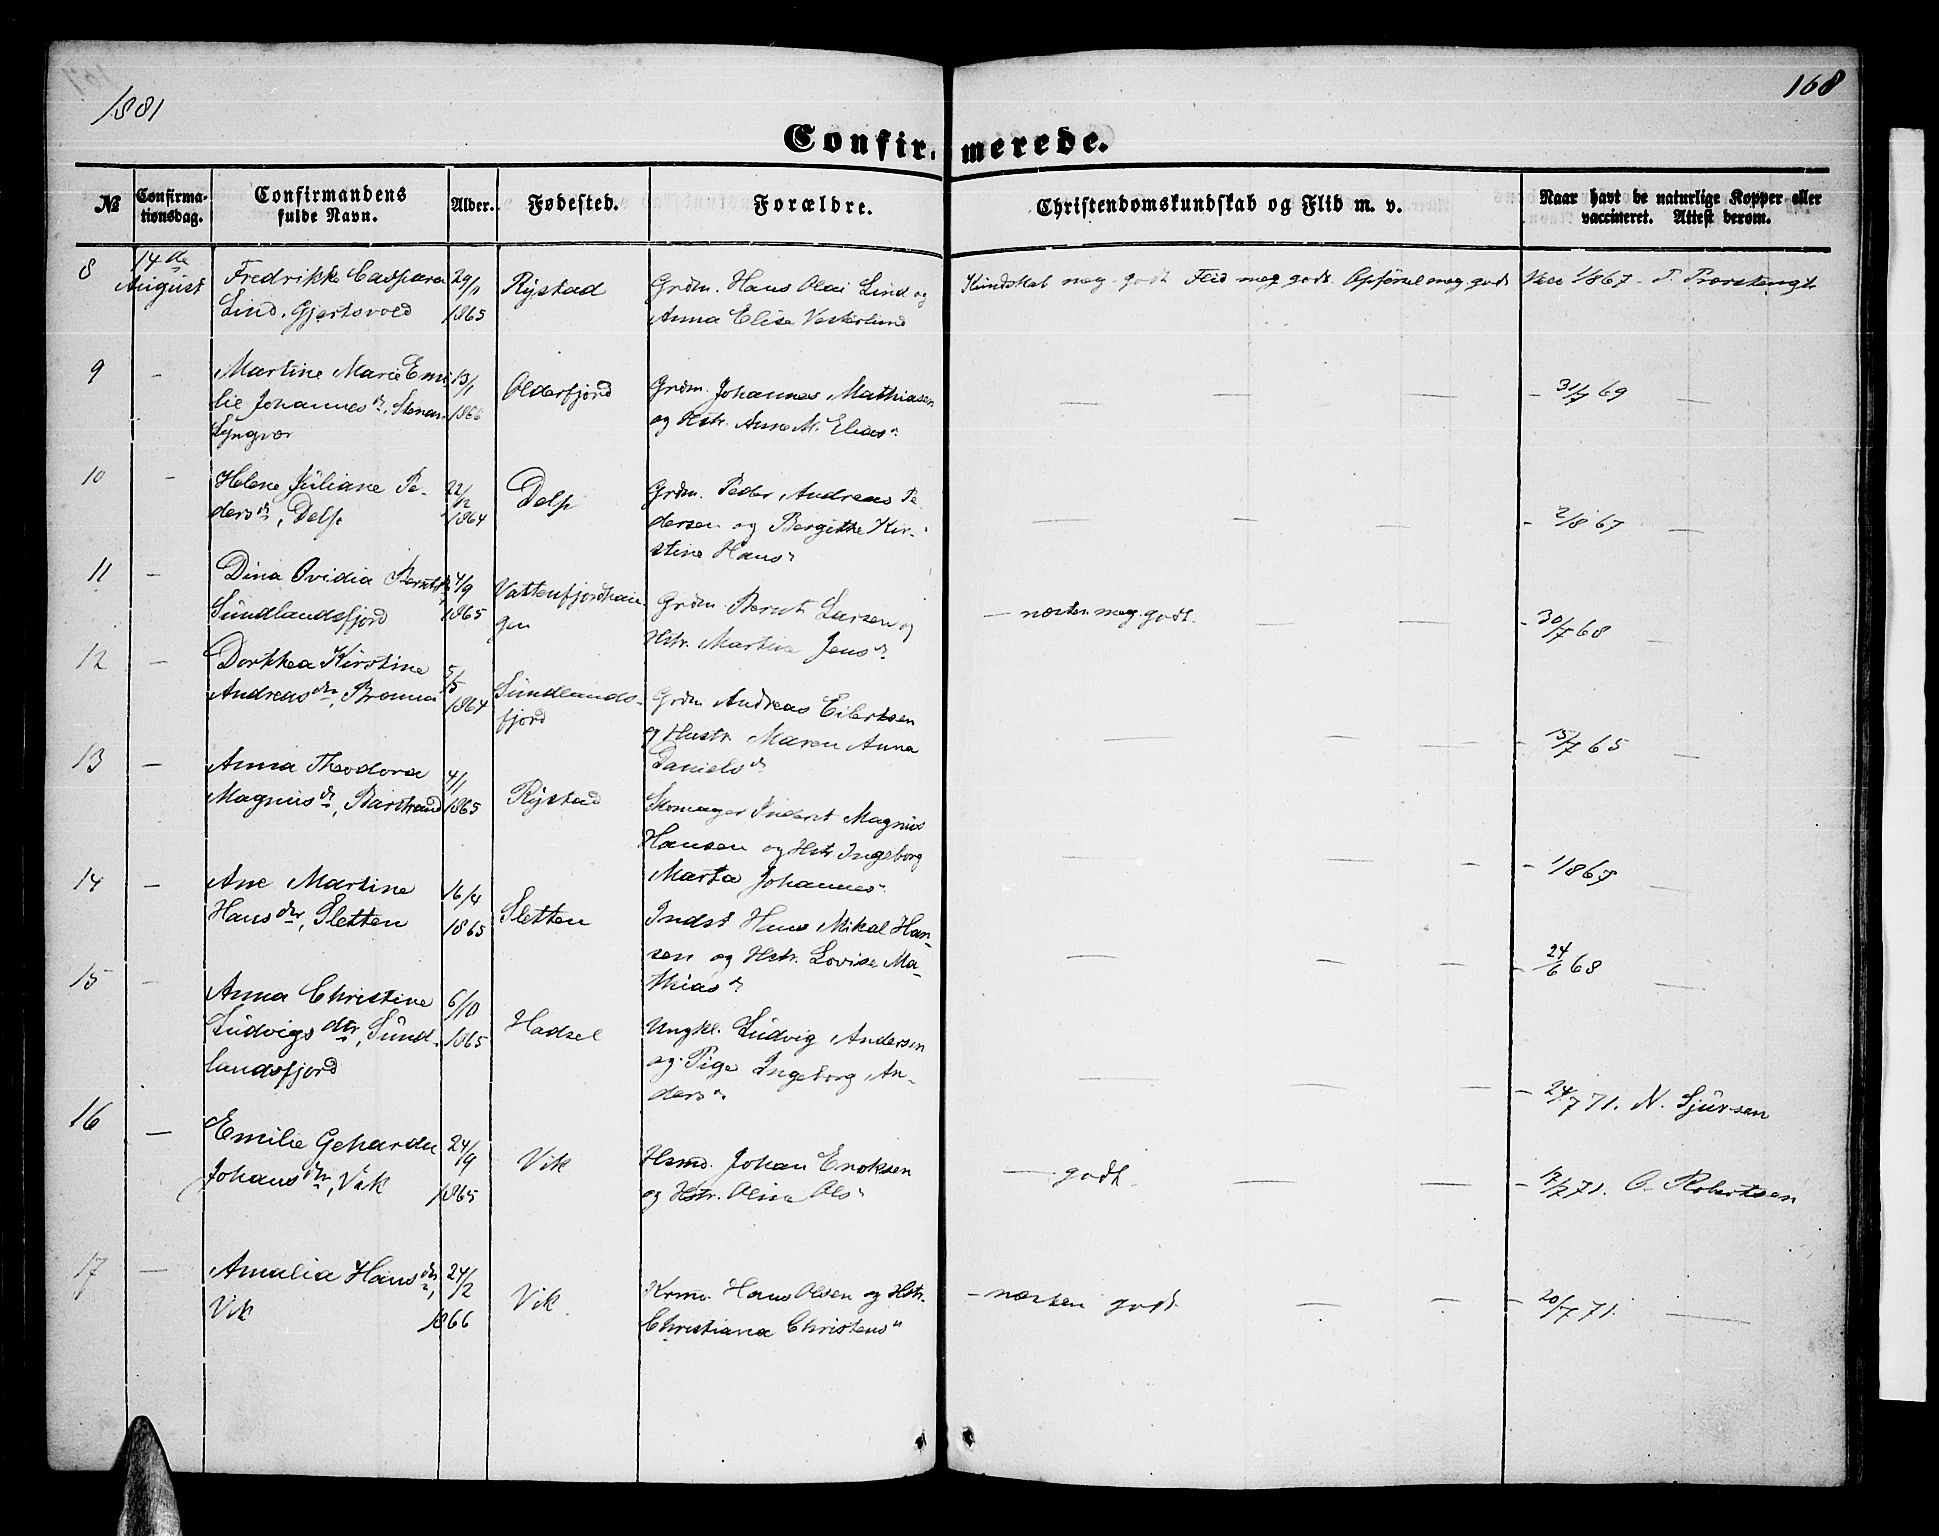 1881
168
Confirmerede.
№
Confirmationsdag.
Confirmandens fulde Navn.
Alder.
Fødested.
Forældre.
Christendomskundskab og Flid m. v.
Naar havt de naturlige Kopper eller vaccineret. Attest derom.
8
14de August
Fredrikke Caspara
Lind, Gjertsvold
29/1
1865
Rystad
Grdm. Hans Olai Lind og
Anna Elise Vesterlund
Kundskab meg. godt Flid meg godt. Opførsel meg godt
Vacc 1/8 67 -
9
–
Martine Marie Emi
lie Johannesdr, Stenar
Lyngvær
13/1
1866
Olderfjord
Grdm. Johannes Mathiasen
og Hstr. Anne M. Elias"
— — —
– 31/7 69 —
10
–
Helene Juliane Pe-
dersdr, Delp
22/12
1864
Delp
Grdm. Peder Andreas Pe
dersen og Bergithe Kir-
stine Hans"
— — —
– 2/8 67 —
11
–
Dina Ovidia Berntsdr,
Sundlandsfjord
4/9
1865
Vattenfjordhau-
gen
Grdm. Bernt Larsen og
Hstr. Martine Jensdr
— næsten meg. godt. — —
– 30/7 68 —
12
–
Dorthea Kirstine
Andreasdtr, Bromma
5/5
1864
Sundlands-
fjord
Grdm Andreas Eilertsen
og Hustr. Maren Anna
Danielsdr
— — —
– 15/7 65 —
13
–
Anna Theodora
Magnusdr, Barstrand
4/1
1865
Rystad
Skomager Inderst Magnus
Hansen og Hstr Ingeborg
Marta Johannes"
— — —
– 1/8 67 —
14
–
Ane Martine
Hansdtr, Sletten
16/4
1865
Sletten
Indst Hans Mikal Han-
sen og Hstr. Lovise Ma-
thiasdr
— — —
– 24/6 68 —
15
–
Anna Christine
Ludvigsdtr, Sund-
landsfjord
6/10
1865
Hadsel
Ungkl. Ludvig Andersen
og Pige Ingeborg An-
ders"
— — —
– 24/7 71. N. Sjursen
16
–
Emilie Geharda
Johansdtr, Vik
24/9
1865
Vik
Hsmd. Johan Enoksen
og Hstr. Olina Ols"
— godt. — —
– 17/7 71. O. Robertsen
17
–
Amalia Hansdtr,
Vik
24/2
1866
Vik.
Hans Olsen og Hstr.
Christiana Christens"
– næsten godt. — —
– 20/7 71. —